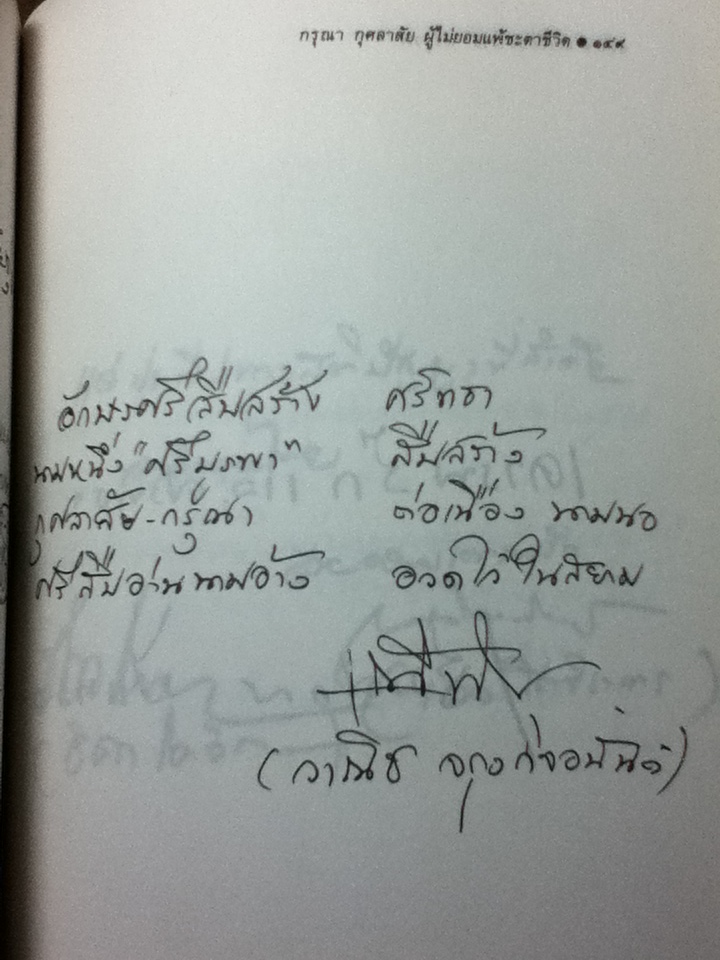 กรุณา กุศลาสัย ผู้ไม่ยอมแพ้ชะตาชีวิต ● ๑๔๙
อักษรศรีสืบสร้าง ศรัทธา
นามหนึ่ง "ศรีบูรพา" สืบสร้าง
กุศลาสัย-กรุณา ต่อเนื่อง นามนอ
ศรีสืบอ่านนามอ้าง อวดไว้ในสยาม
(วาณิช จรุงกิจอนันต์)